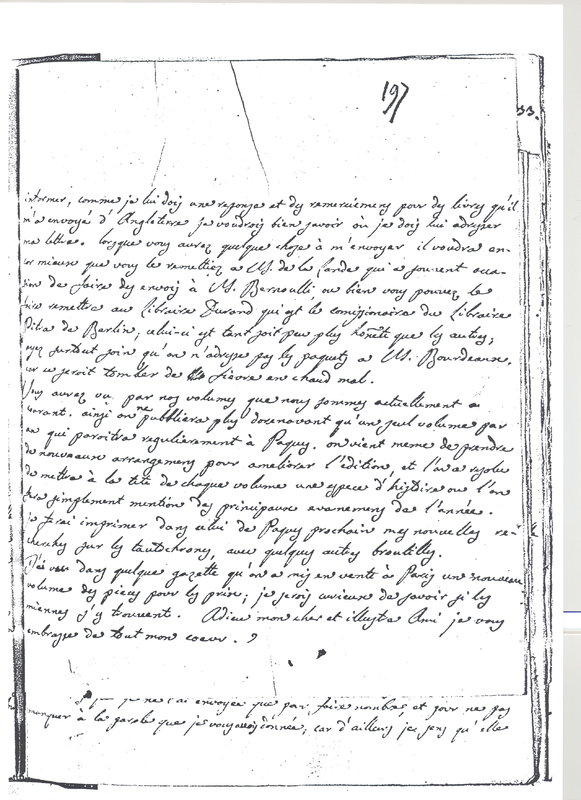 197
33.
informer, comme je lui dois une reponse et des remerciemens pour des livres qu'il
m'a envoyé d'Angleterre je voudrois bien savoir où je dois lui adresser
ma lettre. lorsque vous aurez quelque chose à m'envoyer il voudra en-
cor mieux que vous le remettiez a M. de la Lande qui a souvent occa-
sion de faire des envois à M. Bernoulli ou bien vous pouvez le
faire remettre au libraire Durand qui est le comissionaire du libraire
Pitra de Berlin; celui-ci est tant soit peu plus honête que les autres;
ayez surtout soin qu'on n'adresse pas les paquets a M. Bourdeaux.
car ce seroit tomber de fievre en chaud mal.
Vous aurez vu par nos volumes que nous sommes actuellement au
courant. ainsi on ne publiera plus dorenavant qu'un seul volume par
an qui paroitra regulièrement à Paques. on vient meme de prendre
de nouveaux arrangemens pour ameliorer l'édition, et l'on a resolu
de mettre à la tête de chaque volume une espece d'histoire ou l'on
fera simplement mention des principaux evanemens de l'année.
je ferai imprimer dans celui de Paques prochain mes nouvelles re-
cherches sur les tautochrones, avec quelques autres broutilles.
J'ai vu dans quelque gazette qu'on a mis en vente à Paris un nouveau
volume des pieces pour les prix; je serois curieux de savoir si les
miennes s'y trouvent. Adieu mon cher et illustre Ami je vous
embrasse de tout mon coeur.
je ne l'ai envoyée que par faire nombre, et pour ne pas
manquer à la parole que je vous avois donnée; car d'ailleurs je sens qu'elle